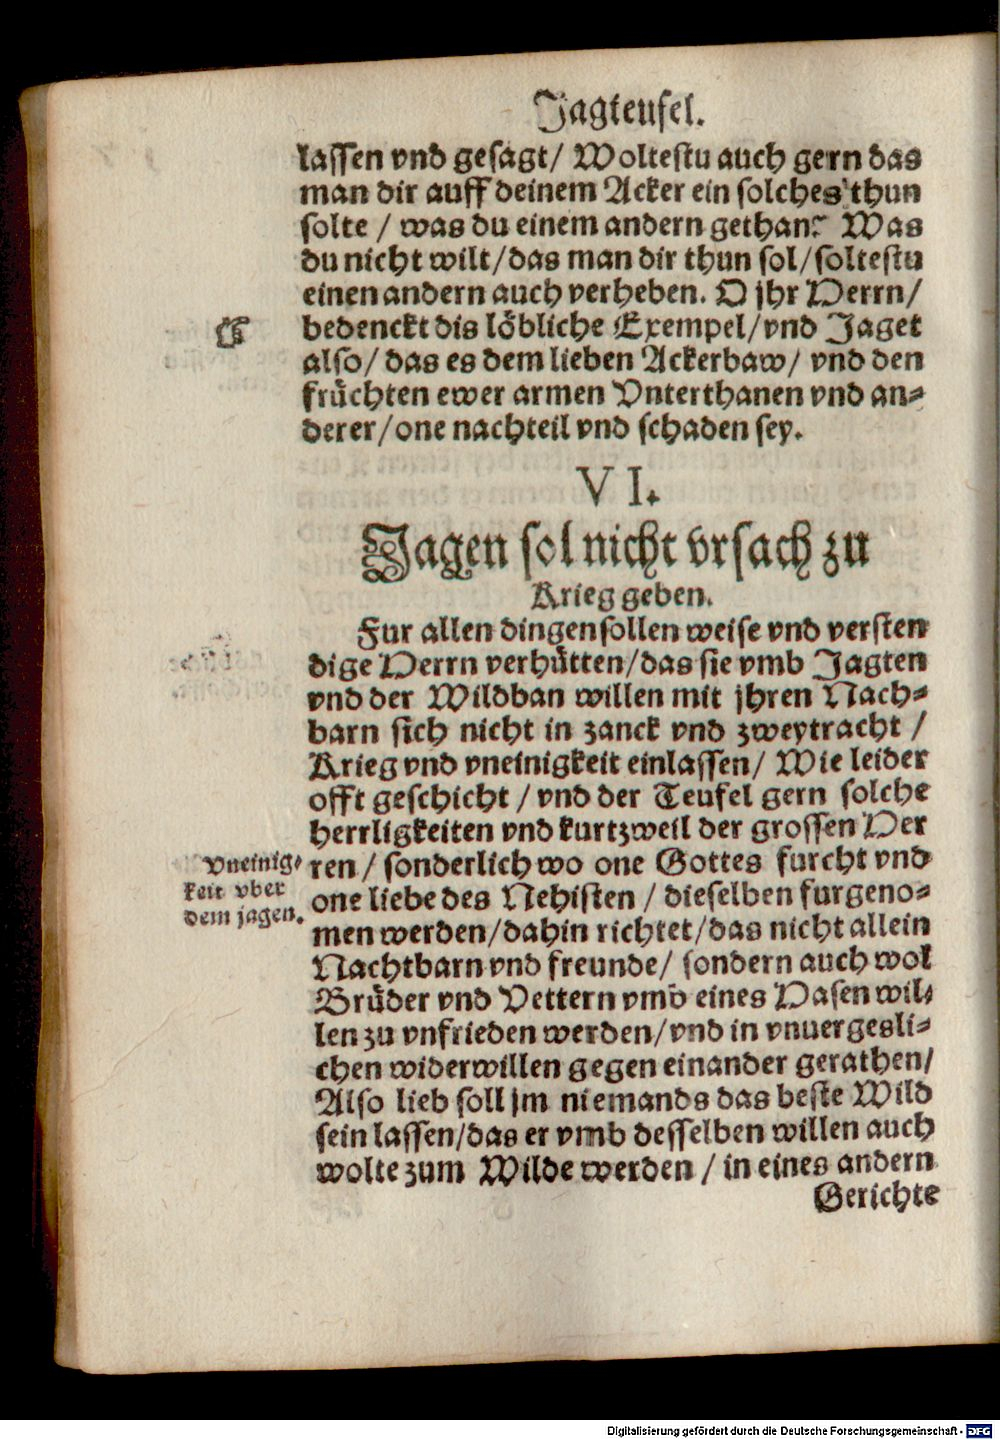 Jagteufel.
lassen vnd gesagt/ Woltestu auch gern das
man dir auff deinem Acker ein solches thun
solte / was du einem andern gethan? Was
du nicht wilt/das man dir thun sol/soltestu
einen andern auch verheben. O jhr Herrn/
bedenckt dis löbliche Exempel/vnd Jaget
also/das es dem lieben Ackerbaw/ vnd den
früchten ewer armen Vnterthanen vnd an-
derer/one nachteil vnd schaden sey.
VI.
Jagen sol nicht vrsach zu
Krieg geben.
Fur allen dingen sollen weise vnd versten
dige Herrn verhütten/das sie vmb Jagten
vnd der Wildban willen mit jhren Nach-
barn sich nicht in zanck vnd zweytracht /
Krieg vnd vneinigkeit einlassen/ Wie leider
offt geschicht / vnd der Teufel gern solche
herrligkeiten vnd kurtzweil der grossen Her
ren / sonderlich wo one Gottes furcht vnd
one liebe des Nehisten / dieselben furgeno-
men werden/dahin richtet/das nicht allein
Nachtbarn vnd freunde/ sondern auch wol
Brüder vnd Vettern vmb eines Hasen wil-
len zu vnfrieden werden/vnd in vnuergesli-
chen widerwillen gegen einander gerathen/
Also lieb soll jm niemands das beste Wild
sein lassen/das er vmb desselben willen auch
wolte zum Wilde werden / in eines andern
Gerichte
Vneinig-
keit vber
dem jagen.
Digitalisierung gefördert durch die Deutsche Forschungsgemeinschaft - DFG